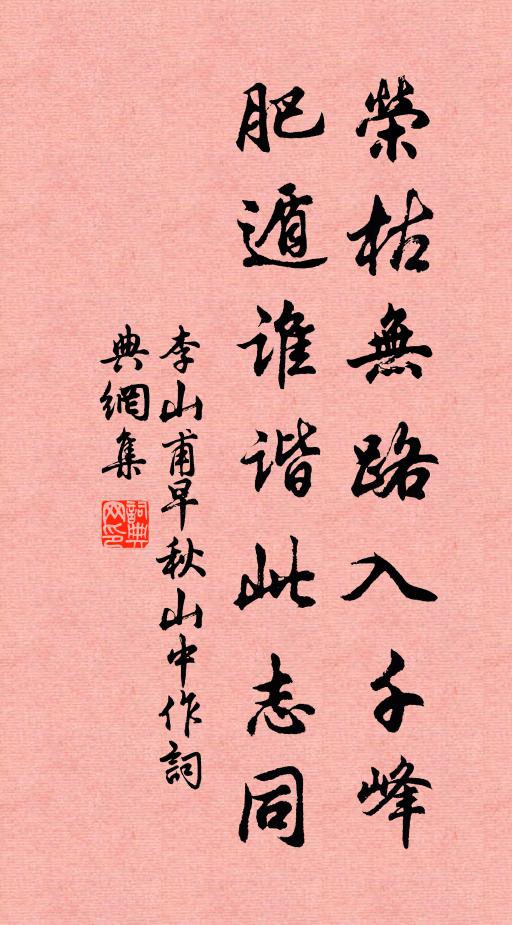 榮枯無路入千峰
肥遁誰諧此志同
李山甫早秋山中作詞
典網集
詞典網印